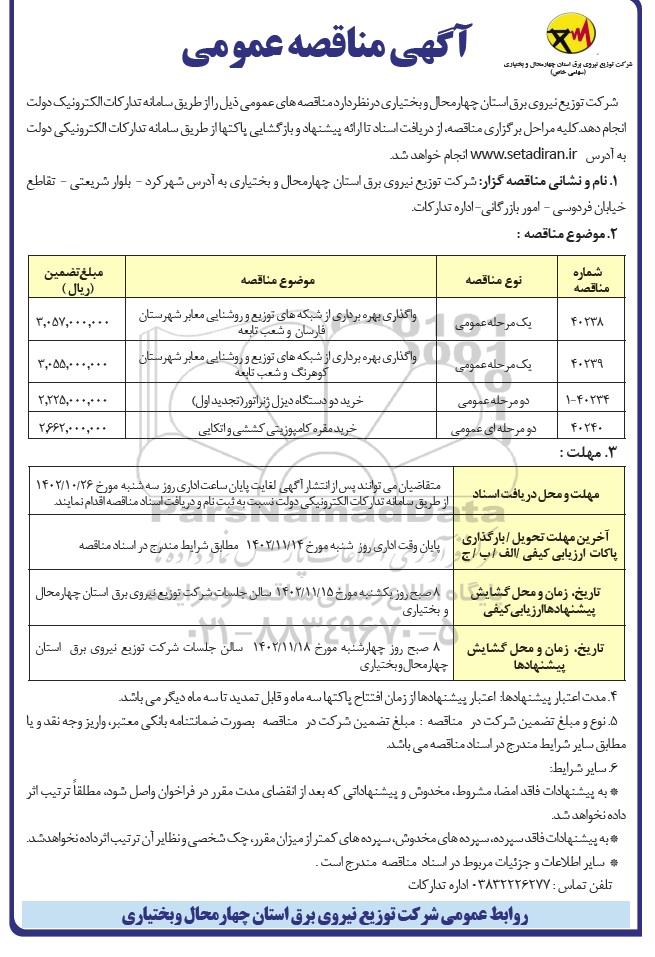 آگهی مناقصه عمومی
شرکت توزیع نیروی برق استان چهارمحال و بختیاری
(سهامی خاص)
شرکت توزیع نیروی برق استان چهارمحال و بختیاری در نظر دارد مناقصه های عمومی ذیل را از طریق سامانه تدارکات الکترونیک دولت
انجام دهد. کلیه مراحل برگزاری مناقصه، از دریافت اسناد تا ارائه پیشنهاد و بازگشایی پاکتها از طریق سامانه تدارکات الکترونیکی دولت
به آدرس www.setadiran.ir انجام خواهد شد.
۱. نام و نشانی مناقصه گزار: شرکت توزیع نیروی برق استان چهارمحال و بختیاری به آدرس شهرکرد - بلوار شریعتی - تقاطع
خیابان فردوسی - امور بازرگانی- اداره تدارکات.
۲. موضوع مناقصه :
شماره مناقصه | نوع مناقصه | موضوع مناقصه | مبلغ تضمین (ریال)
۴۰۲۳۸ | یک مرحله عمومی | واگذاری بهره برداری از شبکه های توزیع و روشنایی معابر شهرستان فارسان و شعب تابعه | ۳,۰۵۷,۰۰۰,۰۰۰
۴۰۲۳۹ | یک مرحله عمومی | واگذاری بهره برداری از شبکه های توزیع و روشنایی معابر شهرستان کوهرنگ و شعب تابعه | ۳,۰۵۵,۰۰۰,۰۰۰
۱-۴۰۲۳۴ | دو مرحله عمومی | خرید دو دستگاه دیزل ژنراتور (تجدید اول) | ۲,۲۲۵,۰۰۰,۰۰۰
۴۰۲۴۰ | دو مرحله ای عمومی | خرید مقره کامپوزیتی کششی و اتکایی | ۲,۶۶۲,۰۰۰,۰۰۰
۳. مهلت :
مهلت و محل دریافت اسناد | متقاضیان می توانند پس از انتشار آگهی لغایت پایان ساعت اداری روز سه شنبه مورخ ۱۴۰۲/۱۰/۲۶
از طریق سامانه تدارکات الکترونیکی دولت نسبت به ثبت نام و دریافت اسناد مناقصه اقدام نمایند.
آخرین مهلت تحویل / بارگذاری
پاکات ارزیابی کیفی /الف / ب / ج | پایان وقت اداری روز شنبه مورخ ۱۴۰۲/۱۱/۱۴ مطابق شرایط مندرج در اسناد مناقصه
تاریخ، زمان و محل گشایش
پیشنهادها ارزیابی کیفی | ۸ صبح روز یکشنبه مورخ ۱۴۰۲/۱۱/۱۵ سالن جلسات شرکت توزیع نیروی برق استان چهارمحال
و بختیاری
تاریخ، زمان و محل گشایش
پیشنهادها | ۸ صبح روز چهارشنبه مورخ ۱۴۰۲/۱۱/۱۸ سالن جلسات شرکت توزیع نیروی برق استان
چهارمحال و بختیاری
۴. مدت اعتبار پیشنهادها: اعتبار پیشنهادها از زمان افتتاح پاکتها سه ماه و قابل تمدید تا سه ماه دیگر می باشد.
۵. نوع و مبلغ تضمین شرکت در مناقصه : مبلغ تضمین شرکت در مناقصه بصورت ضمانتنامه بانکی معتبر، واریز وجه نقد و یا
مطابق سایر شرایط مندرج در اسناد مناقصه می باشد.
۶. سایر شرایط:
* به پیشنهادات فاقد امضا، مشروط، مخدوش و پیشنهاداتی که بعد از انقضای مدت مقرر در فراخوان واصل شود، مطلقاً ترتیب اثر
داده نخواهد شد.
* به پیشنهادات فاقد سپرده، سپرده های مخدوش، سپرده های کمتر از میزان مقرر، چک شخصی و نظایر آن ترتیب اثر داده نخواهد شد.
* سایر اطلاعات و جزئیات مربوط در اسناد مناقصه مندرج است .
تلفن تماس : ۰۳۸۳۲۲۲۶۲۷۷ اداره تدارکات
روابط عمومی شرکت توزیع نیروی برق استان چهارمحال و بختیاری
ParsNamadData
۰۲۱-۸۸۳۴۹۶۷۰-۵